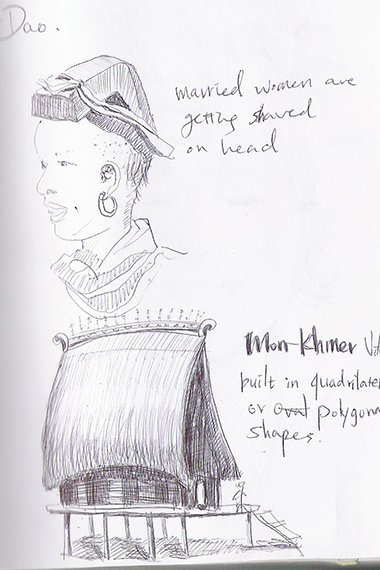 Dao.
married women are
getting shaved
on head
Mon-Khmer
built in quadrilater
or oval polygona
shapes.